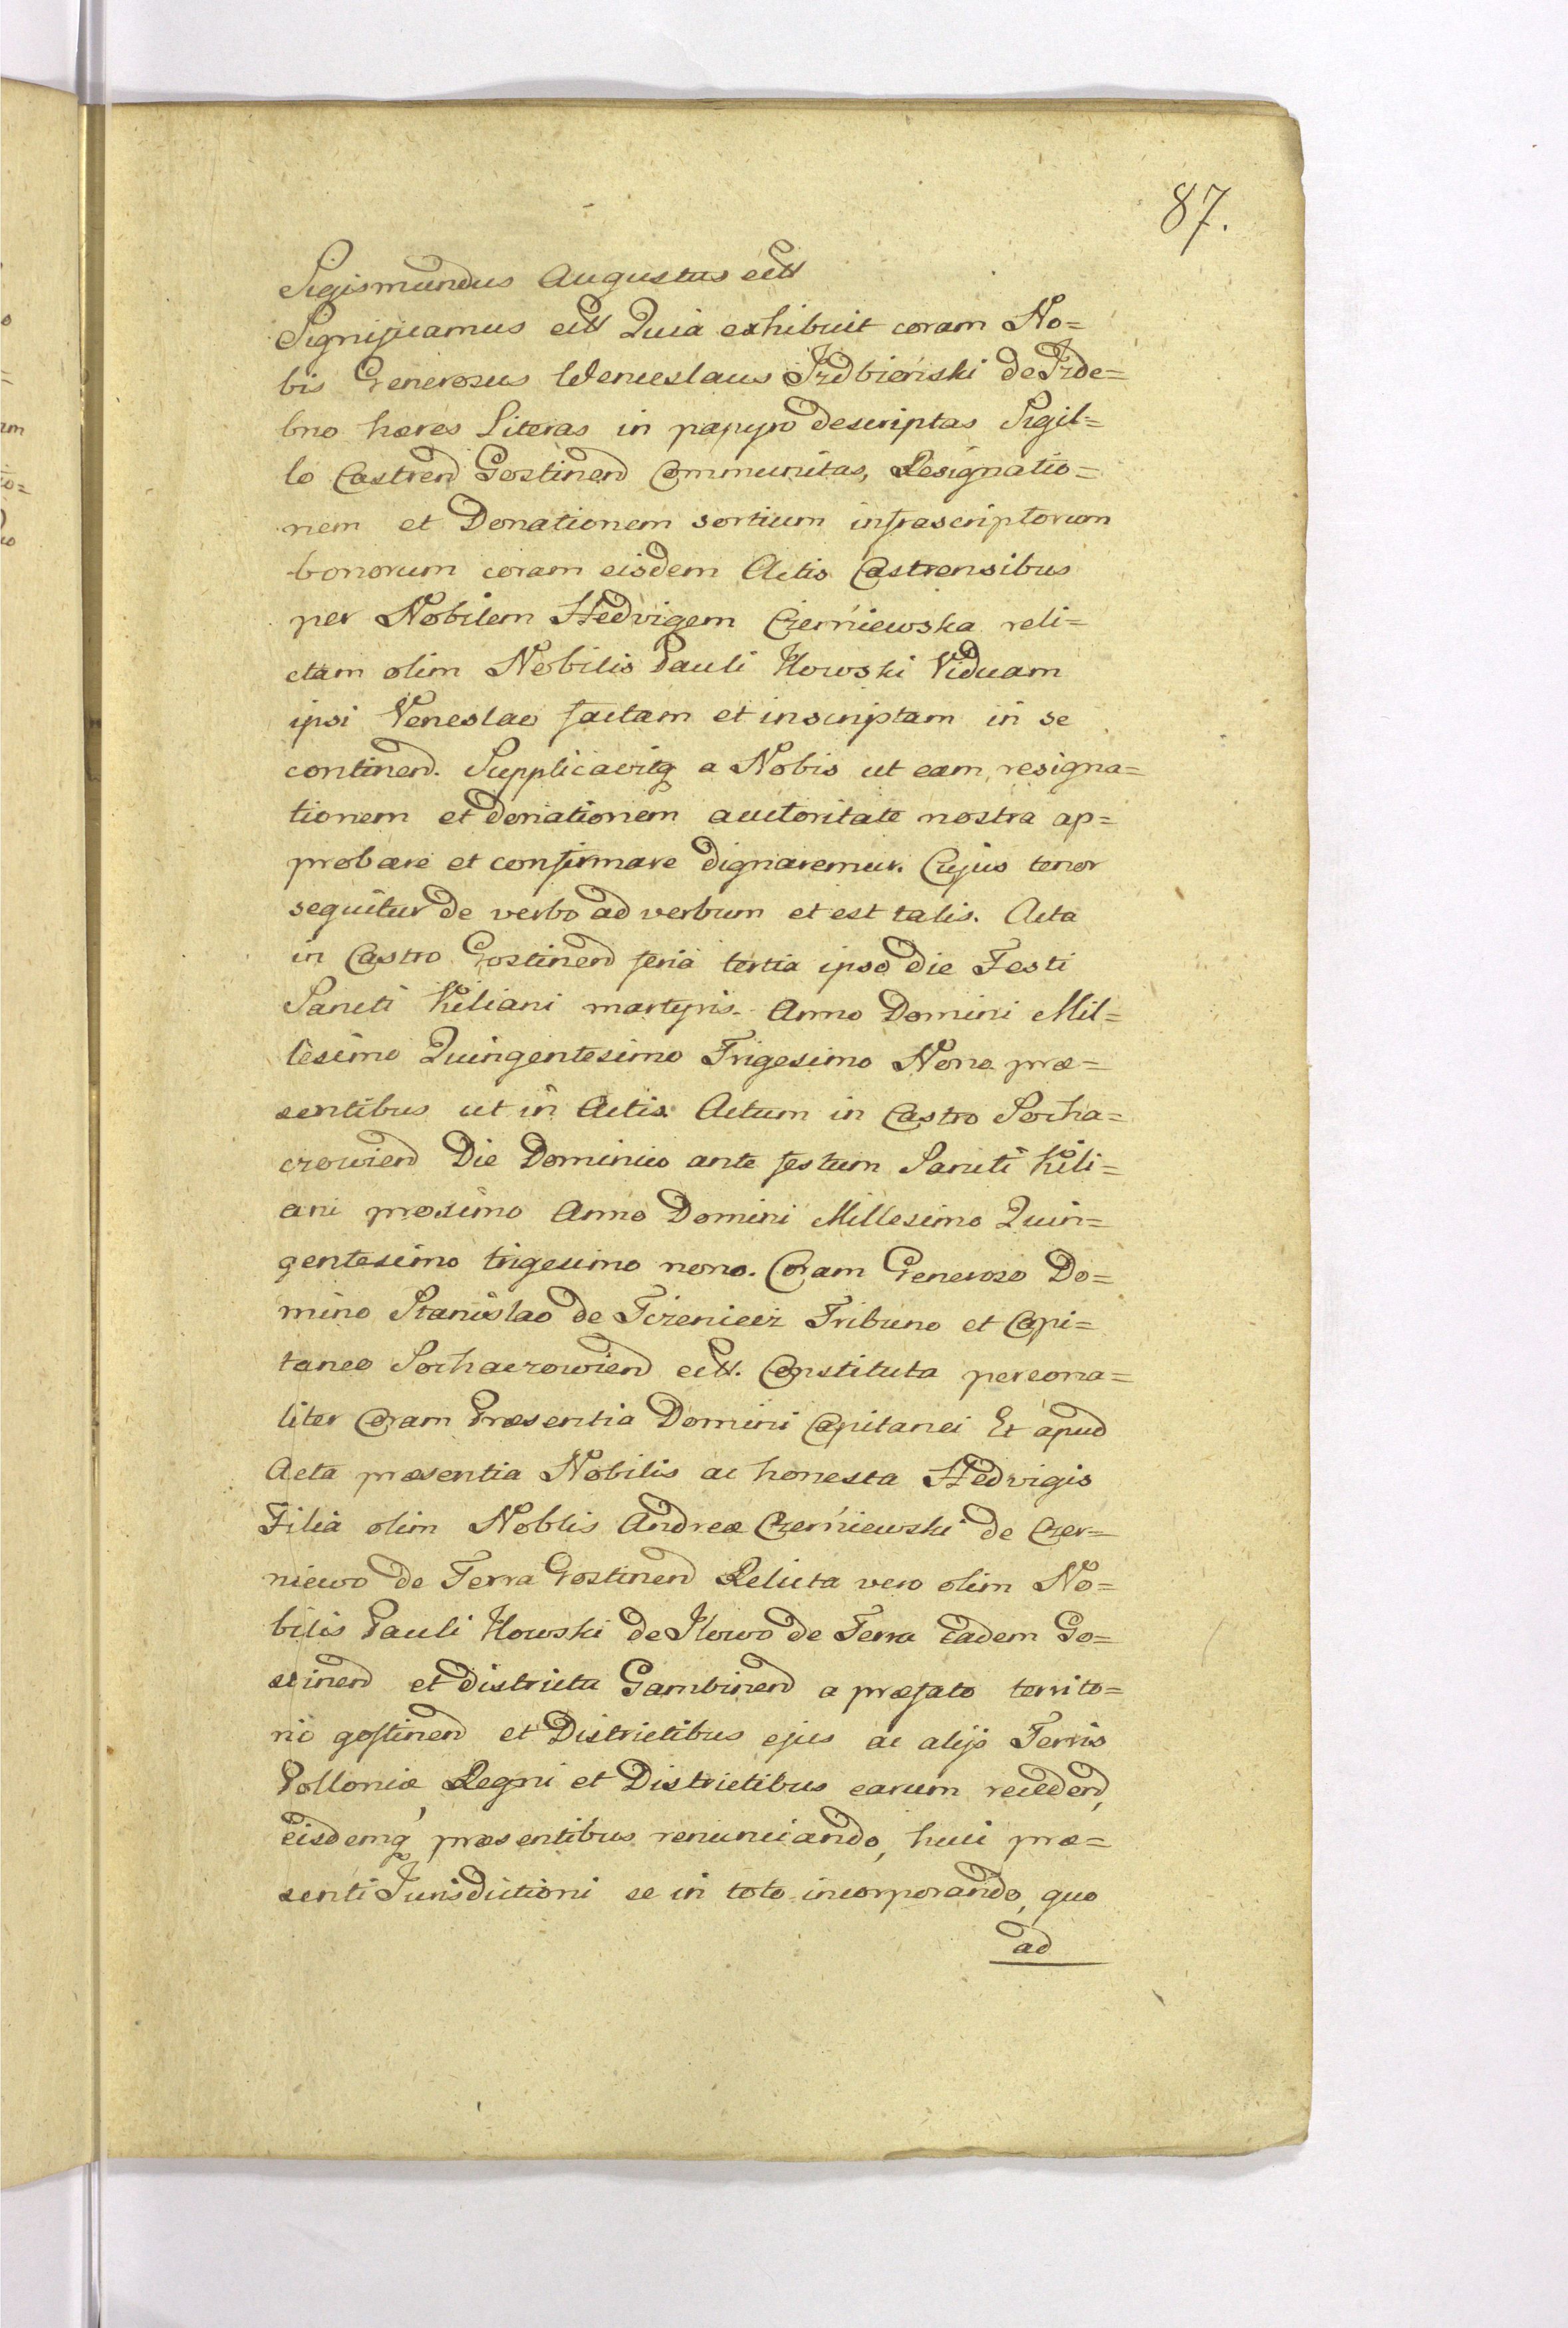 87.
Sigismundus Augustus ett
Significamus ett Quia exhibuit coram No=
bis Generosus Wenceslaus Izdbieński de Izde=
bno hæres Literas in papyro descriptas Sigil=
lo Castren Gostinen Communitas, Resignatio=
nem et Donationem sortium infrascriptorum
bonorum coram eisdem Actis Castrensibus
per Nobilem Hedvigem Czerniewska reli=
ctam olim Nobilis Pauli Iłowski Viduam
ipsi Veneslao factam et inscriptam in se
continen. Supplicavitq a Nobis ut eam, resigna=
tionem et donationem auctoritate nostra ap=
probare et confirmare dignaremur. Cujus tenor
sequitur de verbo ad verbum et est talis. Acta
in Castro Gostinen feria tertia ipso die Festi
Sancti Kiliani martyris. Anno Domini Mil=
lesimo Quingentesimo Trigesimo Nono præ=
sentibus ut in Actis. Actum in Castro Socha=
czowien Die Dominico ante festum Sancti Kili=
ani proximo Anno Domini Millesimo Quin=
gentesimo trigesimo nono. Coram Generoso Do=
mino Stanislao de Tczeniecz Tribuno et Capi=
taneo Sochaczowien ett. Constituta persona=
liter Coram Præsentia Domini Capitanei Et apud
Acta præsentia Nobilis ac honesta Hedvigis
Filia olim Noblis Andreæ Czerniewski de Czer=
niewo de Terra Gostinen Relicta vero olim No=
bilis Pauli Iłowski de Iłowo de Terra Eadem Go=
stinen et districtu Gambinen a præfato territo=
rio gostinen et Districtibus ejus ac alijs Terris
Polloniæ Regni et Districtibus earum receden,
eisdemq præsentibus renunciando, huic præ=
senti Jurisdictioni se in toto incorporando, quo
ad